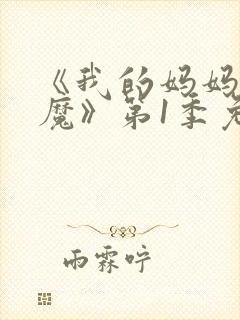 《我的妈妈
魔》第1季免
雨霖咛